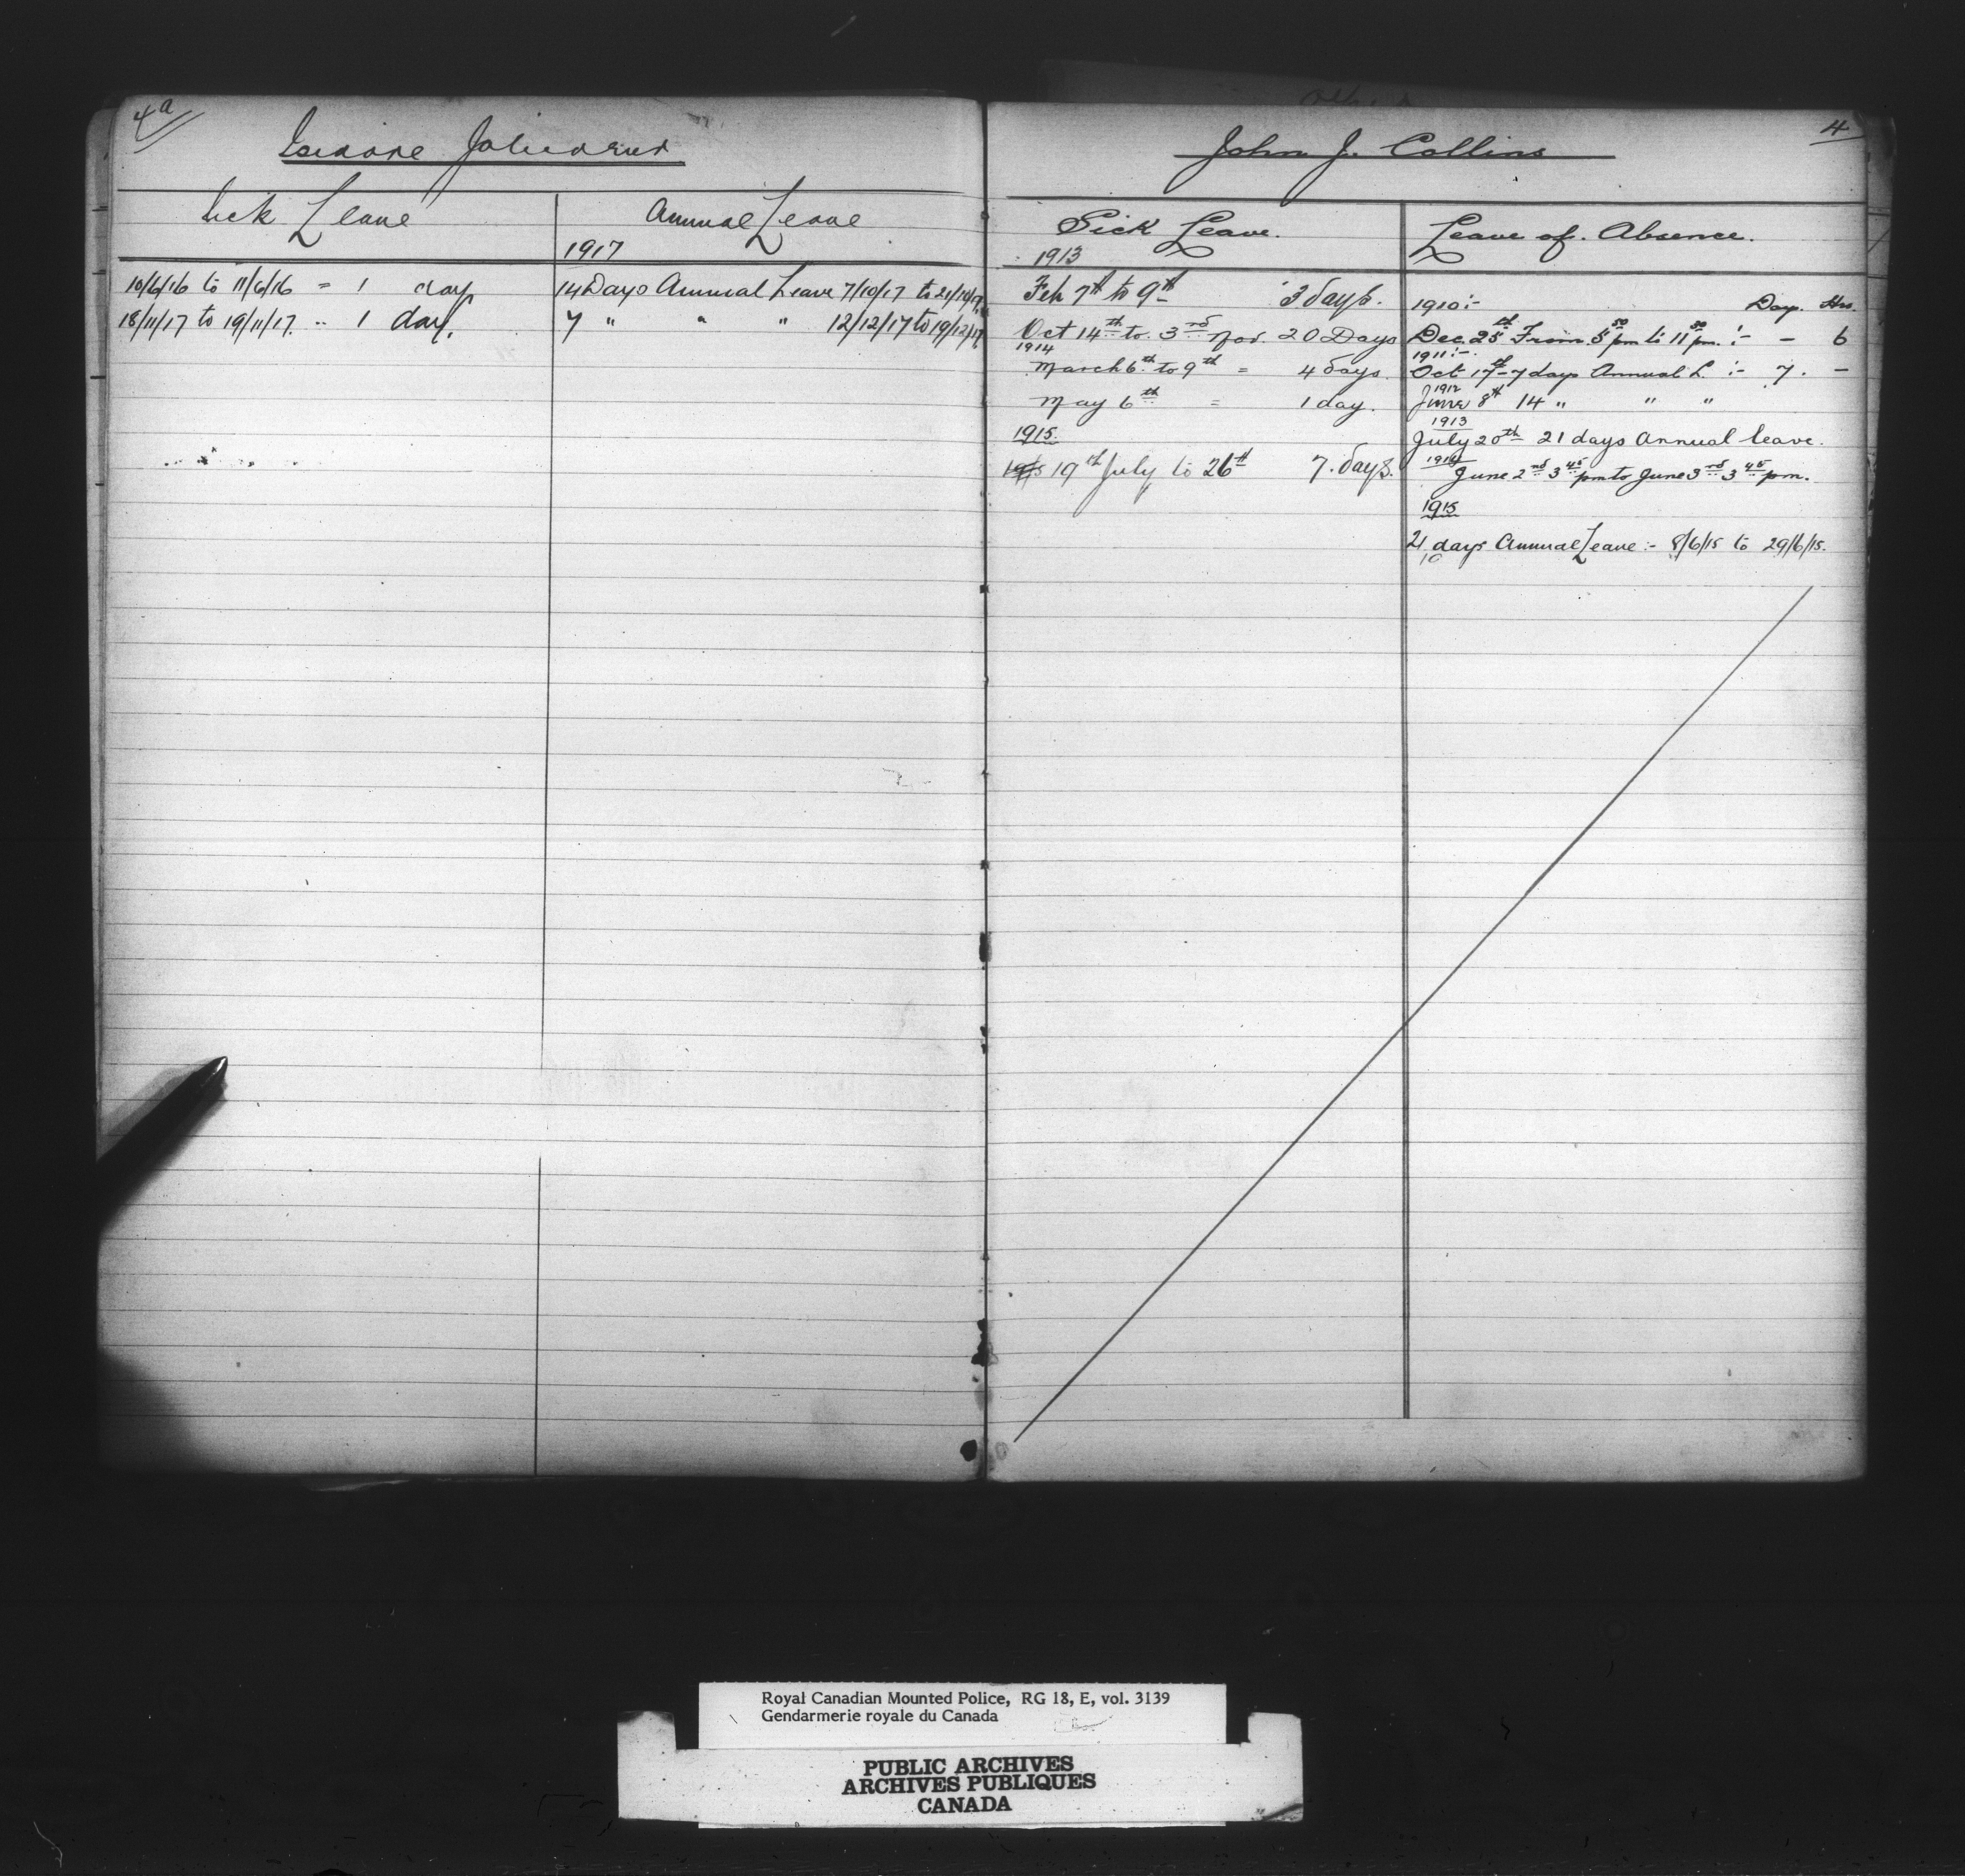 4a
Isidore
Sick Leave
Annual Leave
1917
10/6/16 to 11/6/16 = 1 day
18/11/17 to 19/11/17. " 1 day.
14 Days Annual Leave 7/10/17 to 21/10/17
7 " " " 12/12/17 to 19/12/17
4
John J. Collins
Sick Leave.
1913
Feb 7th to 9th 3 days.
Oct 14th to 3rd Nov. 20 Days
1914
March 6th to 9th = 4 days.
May 6th = 1 day.
1915.
1915 19th July to 26th 7. days.
Leave of. Absence.
1910:- Day. Hrs.
Dec. 25th From 5 50 pm to 11 50 pm. :- - 6
1911:-
Oct 17th - 7 days Annual L. :- 7. -
1912
June 8th 14 " " "
1913
July 20th 21 days Annual leave.
1914
June 2nd 3 45 pm to June 3rd 3 45 pm.
1915
21 days Annual Leave :- 8/6/15 to 29/6/15.
10
Royal Canadian Mounted Police, RG 18, E, vol. 3139
Gendarmerie royale du Canada
PUBLIC ARCHIVES
ARCHIVES PUBLIQUES
CANADA